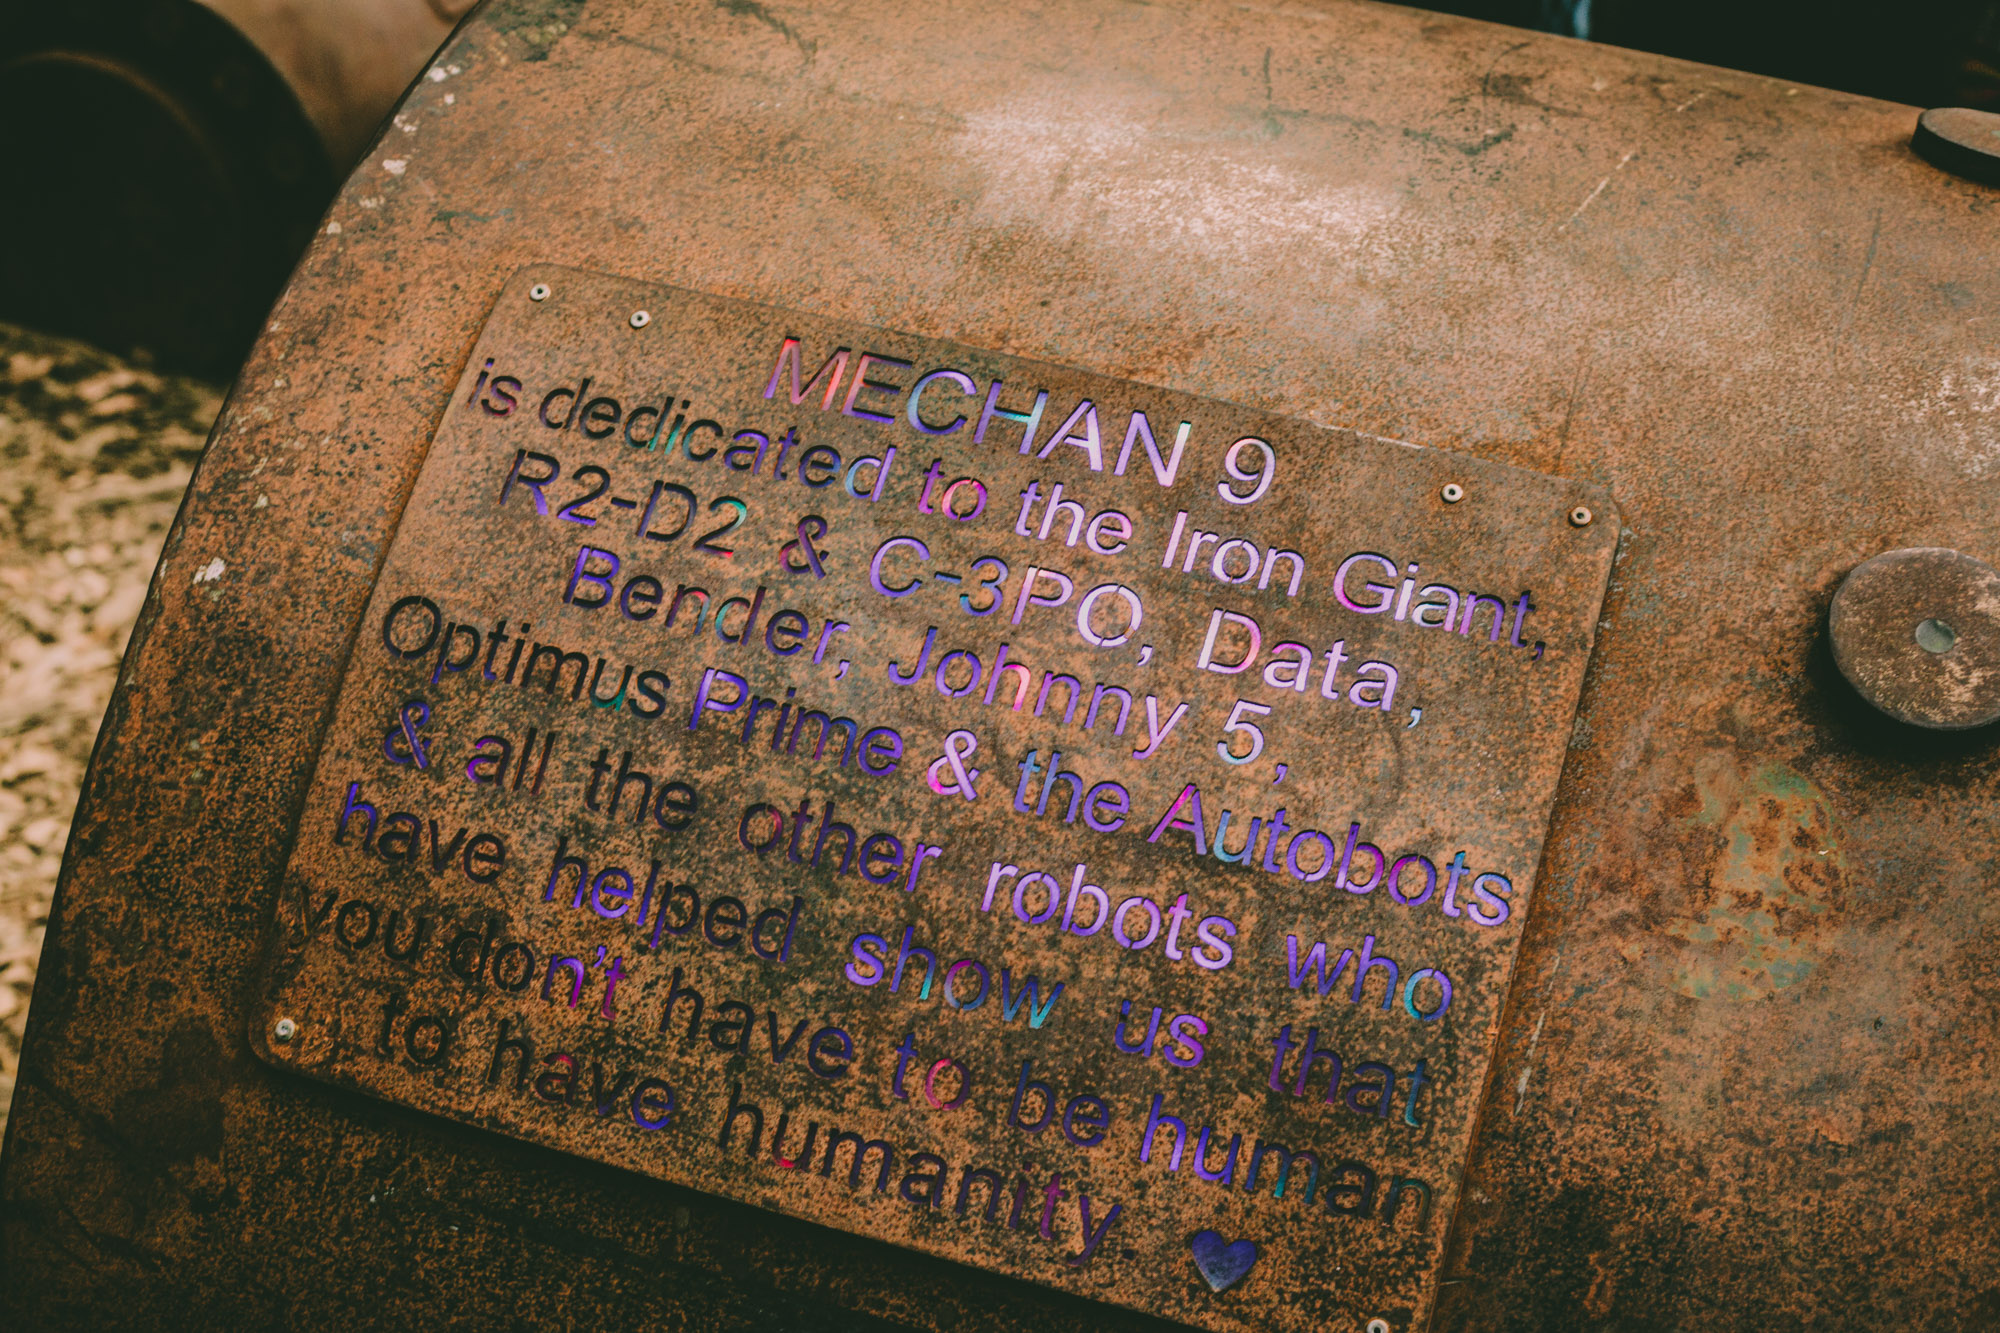 MECHAN 9
is dedicated to the Iron Giant,
R2-D2 & C-3PO, Data,
Bender, Johnny 5,
Optimus Prime & the Autobots
& all the other robots who
have helped show us that
you don't have to be human
to have humanity.